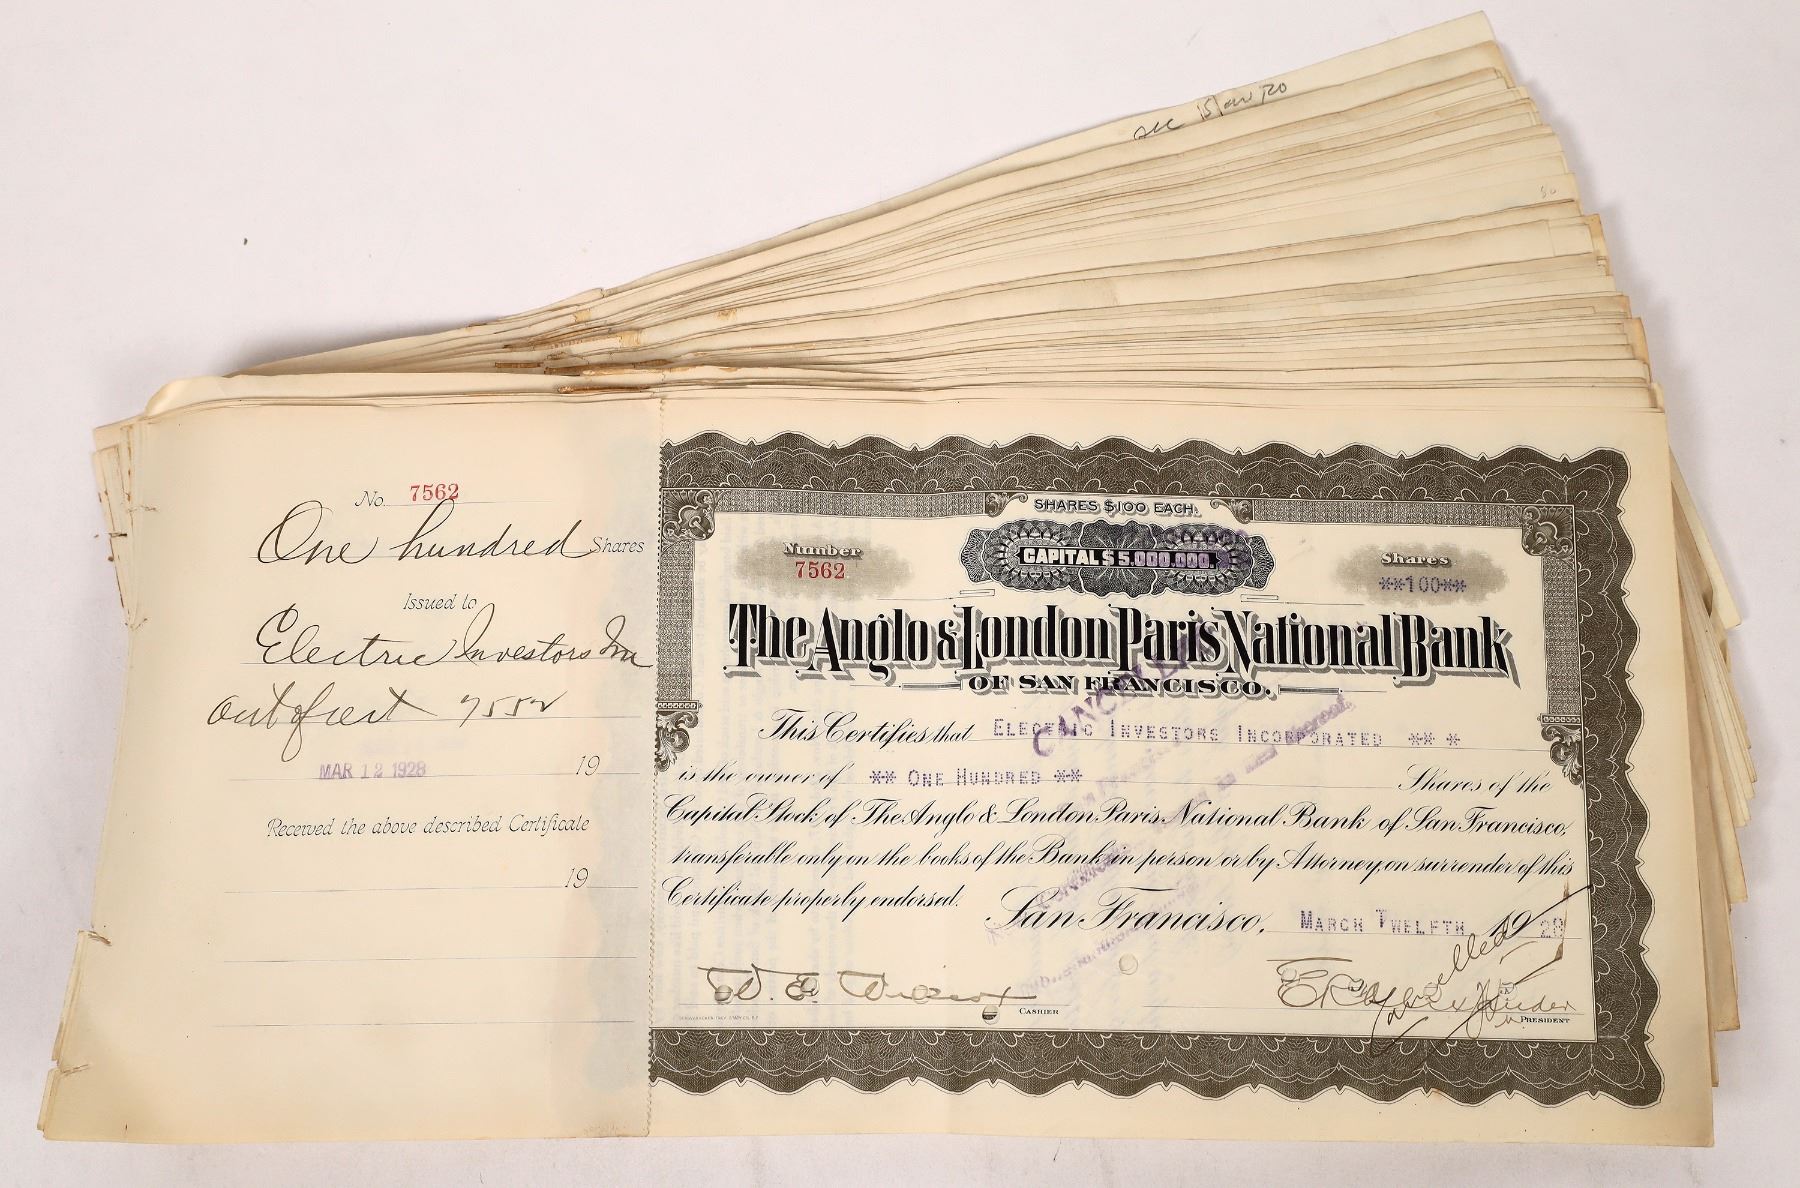 No. 7562
One hundred Shares
Issued to
Electric Investors Inc
out of cert 7552
MAR 12 1928 19
Received the above described Certificate
19
SHARES $100 EACH.
CAPITAL $5,000,000.
Number
7562
Shares
**100**
The Anglo & London Paris National Bank
OF SAN FRANCISCO.
This Certifies that ELECTRIC INVESTORS INCORPORATED ** *
is the owner of ** ONE HUNDRED ** Shares of the
Capital Stock of The Anglo & London Paris National Bank of San Francisco,
transferable only on the books of the Bank in person or by Attorney, on surrender of this
Certificate properly endorsed.
San Francisco, MARCH TWELFTH 1928
CANCELLED
Cancelled
W. E. Wilcox
CASHIER
PRESIDENT